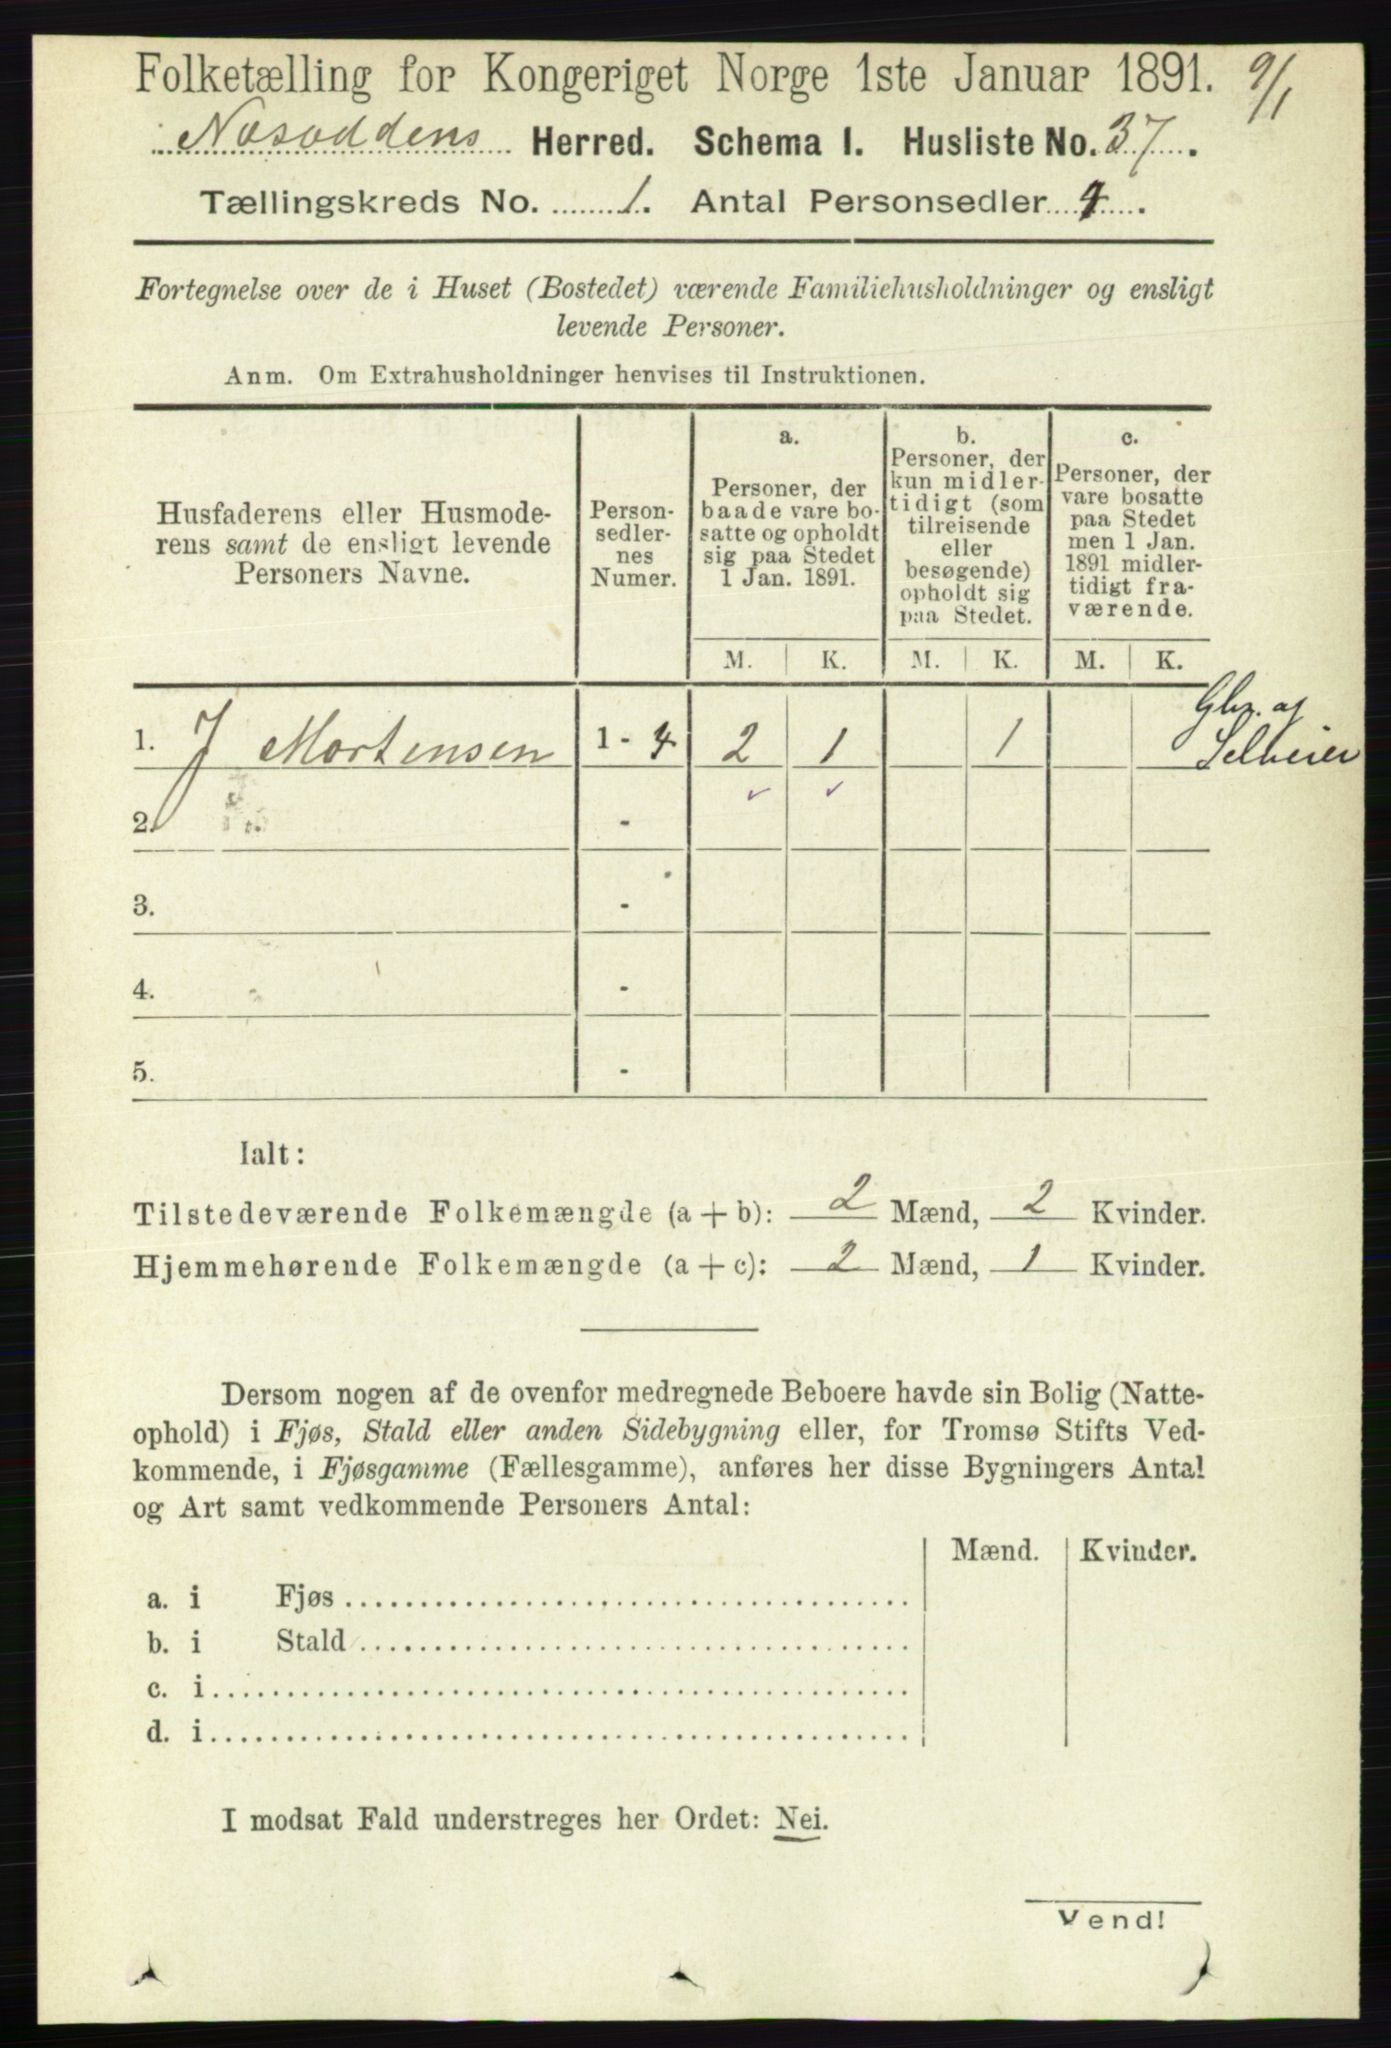 Folketælling for Kongeriget Norge 1ste Januar 1891. 9/1
Næsoddens Herred. Schema I. Husliste No. 37.
Tællingskreds No. 1. Antal Personsedler 4.
Fortegnelse over de i Huset (Bostedet) værende Familiehusholdninger og ensligt
levende Personer.
Anm. Om Extrahusholdninger henvises til Instruktionen.
Husfaderens eller Husmode-
rens samt de ensligt levende
Personers Navne.
Person-
sedler-
nes
Numer.
a.
Personer, der
baade vare bo-
satte og opholdt
sig paa Stedet
1 Jan. 1891.
b.
Personer, der
kun midler-
tidigt (som
tilreisende
eller
besøgende)
opholdt sig
paa Stedet.
c.
Personer, der
vare bosatte
paa Stedet
men 1 Jan.
1891 midler-
tidigt fra-
værende.
M. K. M. K. M. K.
1. J Mortensen 1 - 4 2 1 1
Selveier
2. -
3. -
4. -
5. -
Ialt:
Tilstedeværende Folkemængde (a + b): 2 Mænd, 2 Kvinder.
Hjemmehørende Folkemængde (a + c): 2 Mænd, 1 Kvinder.
Dersom nogen af de ovenfor medregnede Beboere havde sin Bolig (Natte-
ophold) i Fjøs, Stald eller anden Sidebygning eller, for Tromsø Stifts Ved-
kommende, i Fjøsgamme (Fællesgamme), anføres her disse Bygningers Antal
og Art samt vedkommende Personers Antal:
Mænd. Kvinder.
a. i Fjøs
b. i Stald
c. i
d. i
I modsat Fald understreges her Ordet: Nei.
Vend!